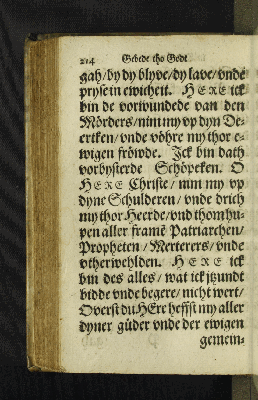 214 Gebede tho Godt
gah/by dy blyve/dy lave/vnde
pryse in ewicheit. HERE ick
bin de vorwundede van den
Mörders/nim my vp dyn De-
ertken/vnde vöhre my thor e-
wigen fröwde. Jck bin dath
vorbysterde Schöpcken. O
HERE Christe/ nim my vp
dyne Schulderen / vnde drich
my thor Heerde/vnd thom hu-
pen aller framē Patriarchen/
Propheten / Merterers/ vnde
vtherwehlden. HERE ick
bin des alles/ wat ick jtzundt
bidde vnde begere/ nicht wert/
Overst du HEre heffst my aller
dyner güder vnde der ewigen
gemein-